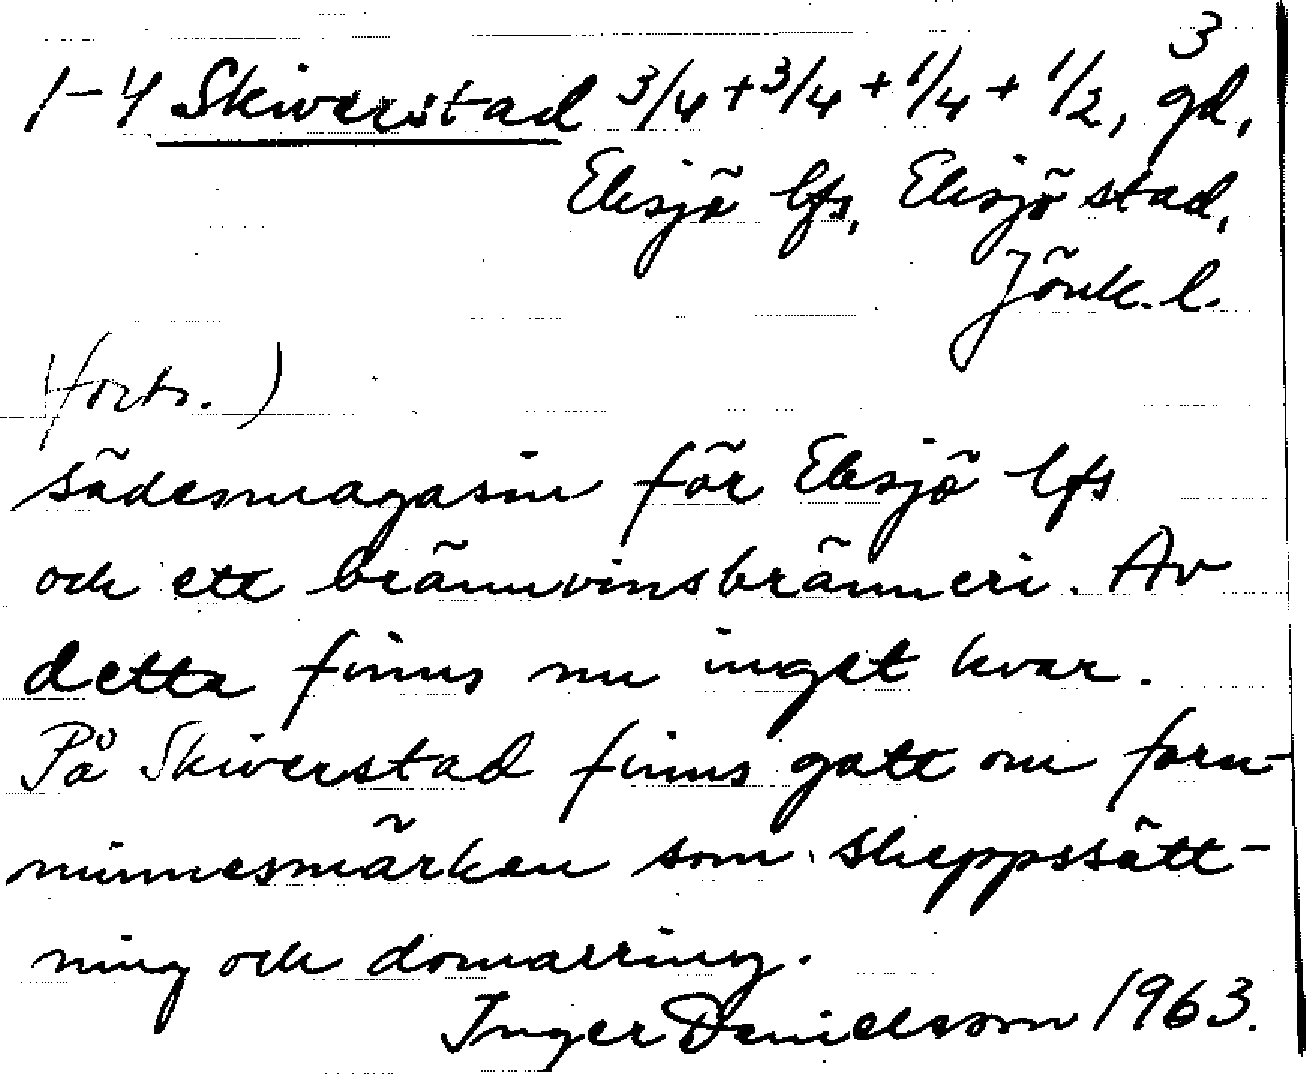 3
1-4 Skiverstad 3/4 + 3/4 + 1/4 + 1/2, gd,
Eksjö lfs, Eksjö stad,
Jönk. l.
(forts.)
sädesmagasin för Eksjö lfs
och ett brännvinsbränneri. Av
detta finns nu inget kvar.
På Skiverstad finns gott om forn-
minnesmärken som skeppssätt-
ning och domarring.
Inger Danielsson 1963.